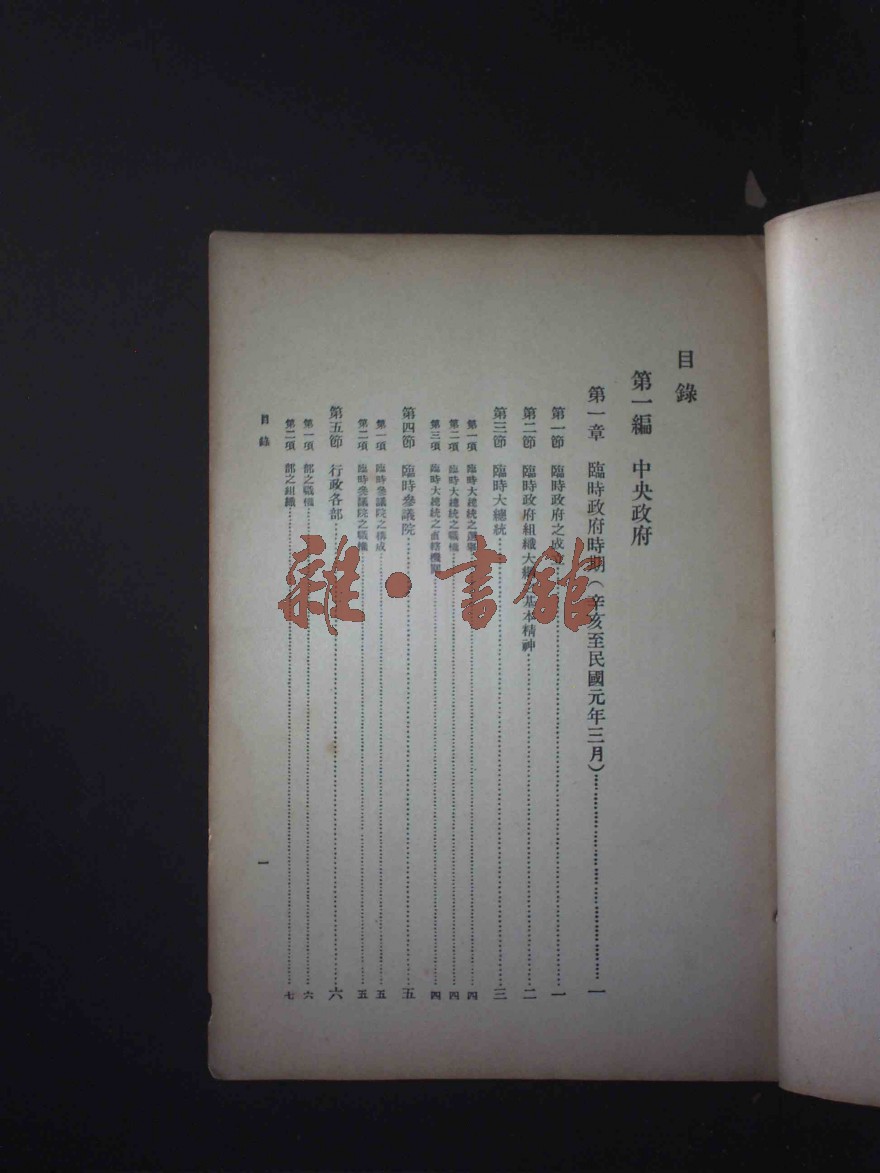 目錄
第一編 中央政府
第一章 臨時政府時期(辛亥至民國元年三月)……一
第一節 臨時政府之成立……一
第二節 臨時政府組織大綱 基本精神……二
第三節 臨時大總統……三
第一項 臨時大總統之選舉……四
第二項 臨時大總統之職權……四
第三項 臨時大總統之直轄機關……四
第四節 臨時參議院……五
第一項 臨時參議院之構成……五
第二項 臨時參議院之職權……五
第五節 行政各部……六
第一項 部之職權……六
第二項 部之組織……七
目錄
一
雜·書館